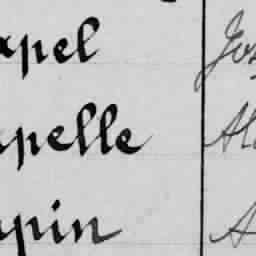 apel Jos
apelle Al
apin A